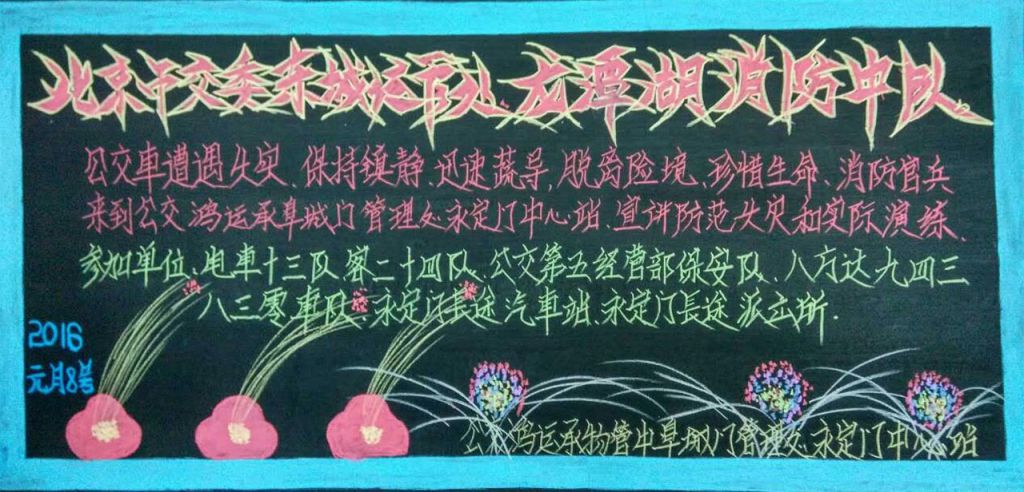 北京市交委东城运管处龙潭湖消防中队
公交車遭遇火灾、保持镇静、迅速蔬导、脱离险境、珍惜生命、消防官兵
来到公交鸿运承阜城门管理处永定门中心站、宣讲防范火灾和实际演练、
参加单位、电車十三队客二十四队、公交第五经营部保安队、八方达九四三
八三零車队、永定门長途汽車站、永定门長途派出所.
2016
元月8号
公交鸿运承物管中阜城门管理处永定门中心站